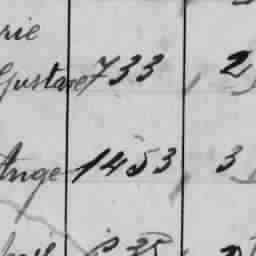 rie
Gustave 733, 2,
Ange 1453, 3,